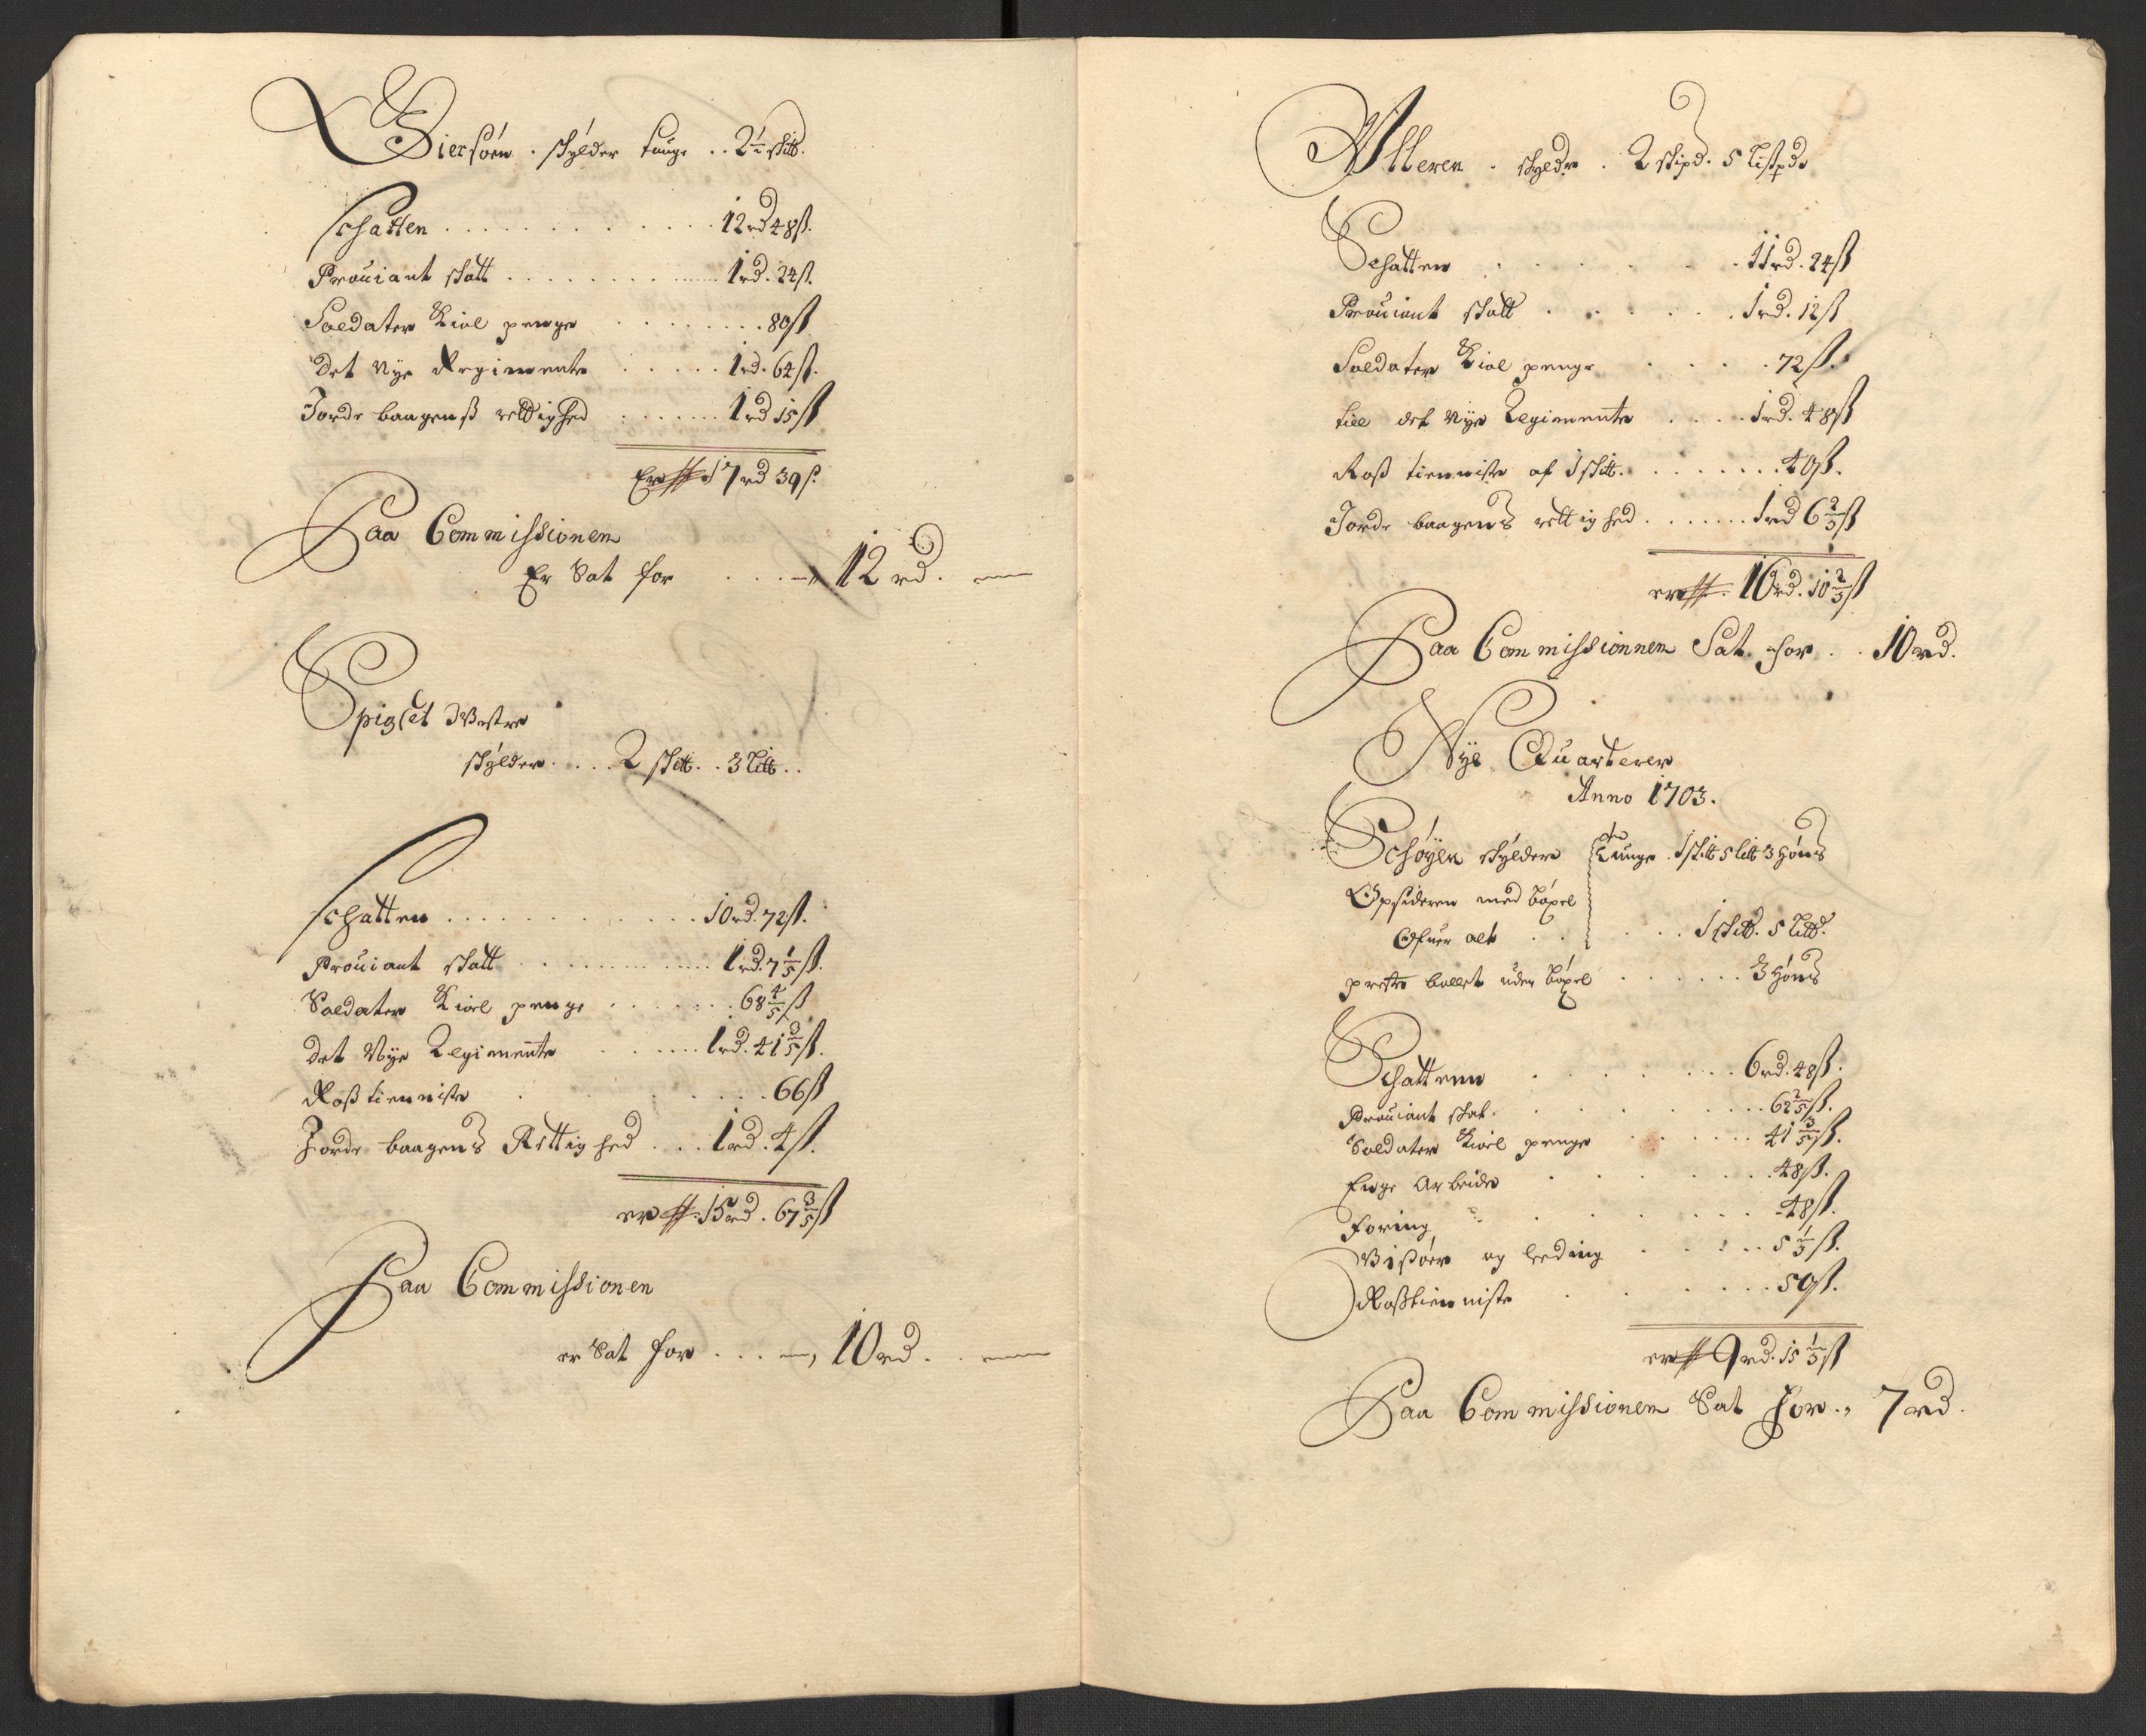 Biersøen . skylder tunge .. 2½ sk℔.
Schatten . . . . . 12 rd 48 ß.
Prouiant skatt . . . . . 1 rd. 24 ß.
Soldater Kiol penge . . . . . 80 ß
Det Nye Regimente . . . . . 1 rd. 64 ß.
Jorde baagenß rettighed . . . . . 1 rd 15 ß
Er 17 rd 39 ß.
Paa Commissionen
Er Sat for . . . 12 rd.
Spigset Westre
skylder . . . . 2 sk℔. . 3 Li℔ . .
Schatten . . . . . 10 rd. 72 ß.
Prouiant skatt . . . . . 1 rd. 7 1/5 ß.
Soldater Kiol penge . . . . . 68 4/5 ß
Det Nye Regimente . . . . . 1 rd. 41 3/5 ß.
Roß tienniste . . . . . 66 ß
Jorde baagens Rettighed . . . 1 rd. 4 ß.
er 15 rd. 67 3/5 ß
Paa Commissionen
er Sat for . . . 10 rd.
Ulleren . skyldr . 2 skipd. 5 Lispd
Schatten . . . . . 11 rd. 24 ß
Prouiant skatt . . . . . 1 rd. 12 ß
Soldater Kiol penge . . . . 72 ß.
till det Nye Regimente . . . . 1 rd. 48 ß
Roß tienniste af 1 sk℔. . . . . . 40 ß.
Jorde baagens rettighed . . . . . 1 rd 6 2/3 ß
er 16 rd. 10 2/3 ß
Paa Commissionnen Sat for . . 10 rd.
Nye Quarterer
Anno 1703.
Schøyen skylder tunge . 1 sk℔ 5 li℔ 3 Høns
Opsideren med bøxel
Ofuer alt . . . . . 1 sk℔. 5 Li℔.
preste bollet uden bøxel . . . . . 3 Høns
Schattenn . . . . . 6 rd. 48 ß.
Prouiant skat . . . . . 62 2/5 ß.
Soldater Kiol penge . . . . . 41 3/5 ß.
Enge Arbeide . . . . . 48 ß.
Foring . . . . . 48 ß.
Wißøer og leeding . . . . . 5 1/3 ß.
Roßtienniste . . . . . 50 ß.
er 9 rd. 15 1/3 ß
Paa Commissionen Sat for . , 7 rd.